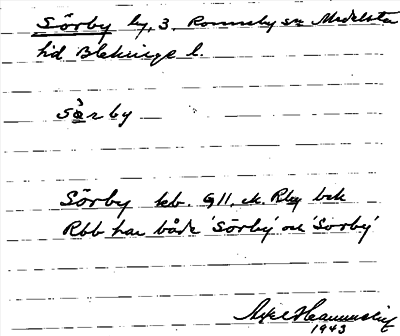 Sörby by, 3. Ronneby sn Medelsta
hd Blekinge l.
sörby
Sörby kb. G II, ek. Rby bek
Rbb har både 'Sörby' och 'Sorby'
Axel
1943